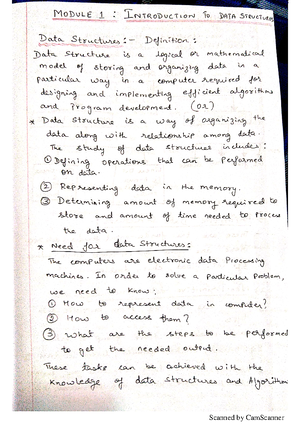 MODULE 1 : INTRODUCTION TO DATA STRUCTURES
Data Structures :- Definition :
Data Structure is a logical or mathematical
model of storing and organizing data in a
particular way in a computer required for
designing and implementing efficient algorithms
and Program development. (Or)
* Data Structure is a way of organizing the
data along with relationship among data.
The study of data structures includes :
① Defining operations that can be performed
on data.
② Representing data in the memory.
③ Determining amount of memory required to
store and amount of time needed to process
the data.
* Need for data Structures:
The computers are electronic data Processing
machines. In order to solve a Particular Problem,
we need to know:
① How to represent data in computer?
② How to access them?
③ What are the steps to be performed
to get the needed output.
These tasks can be achieved with the
knowledge of data structures and Algorithm
Scanned by CamScanner